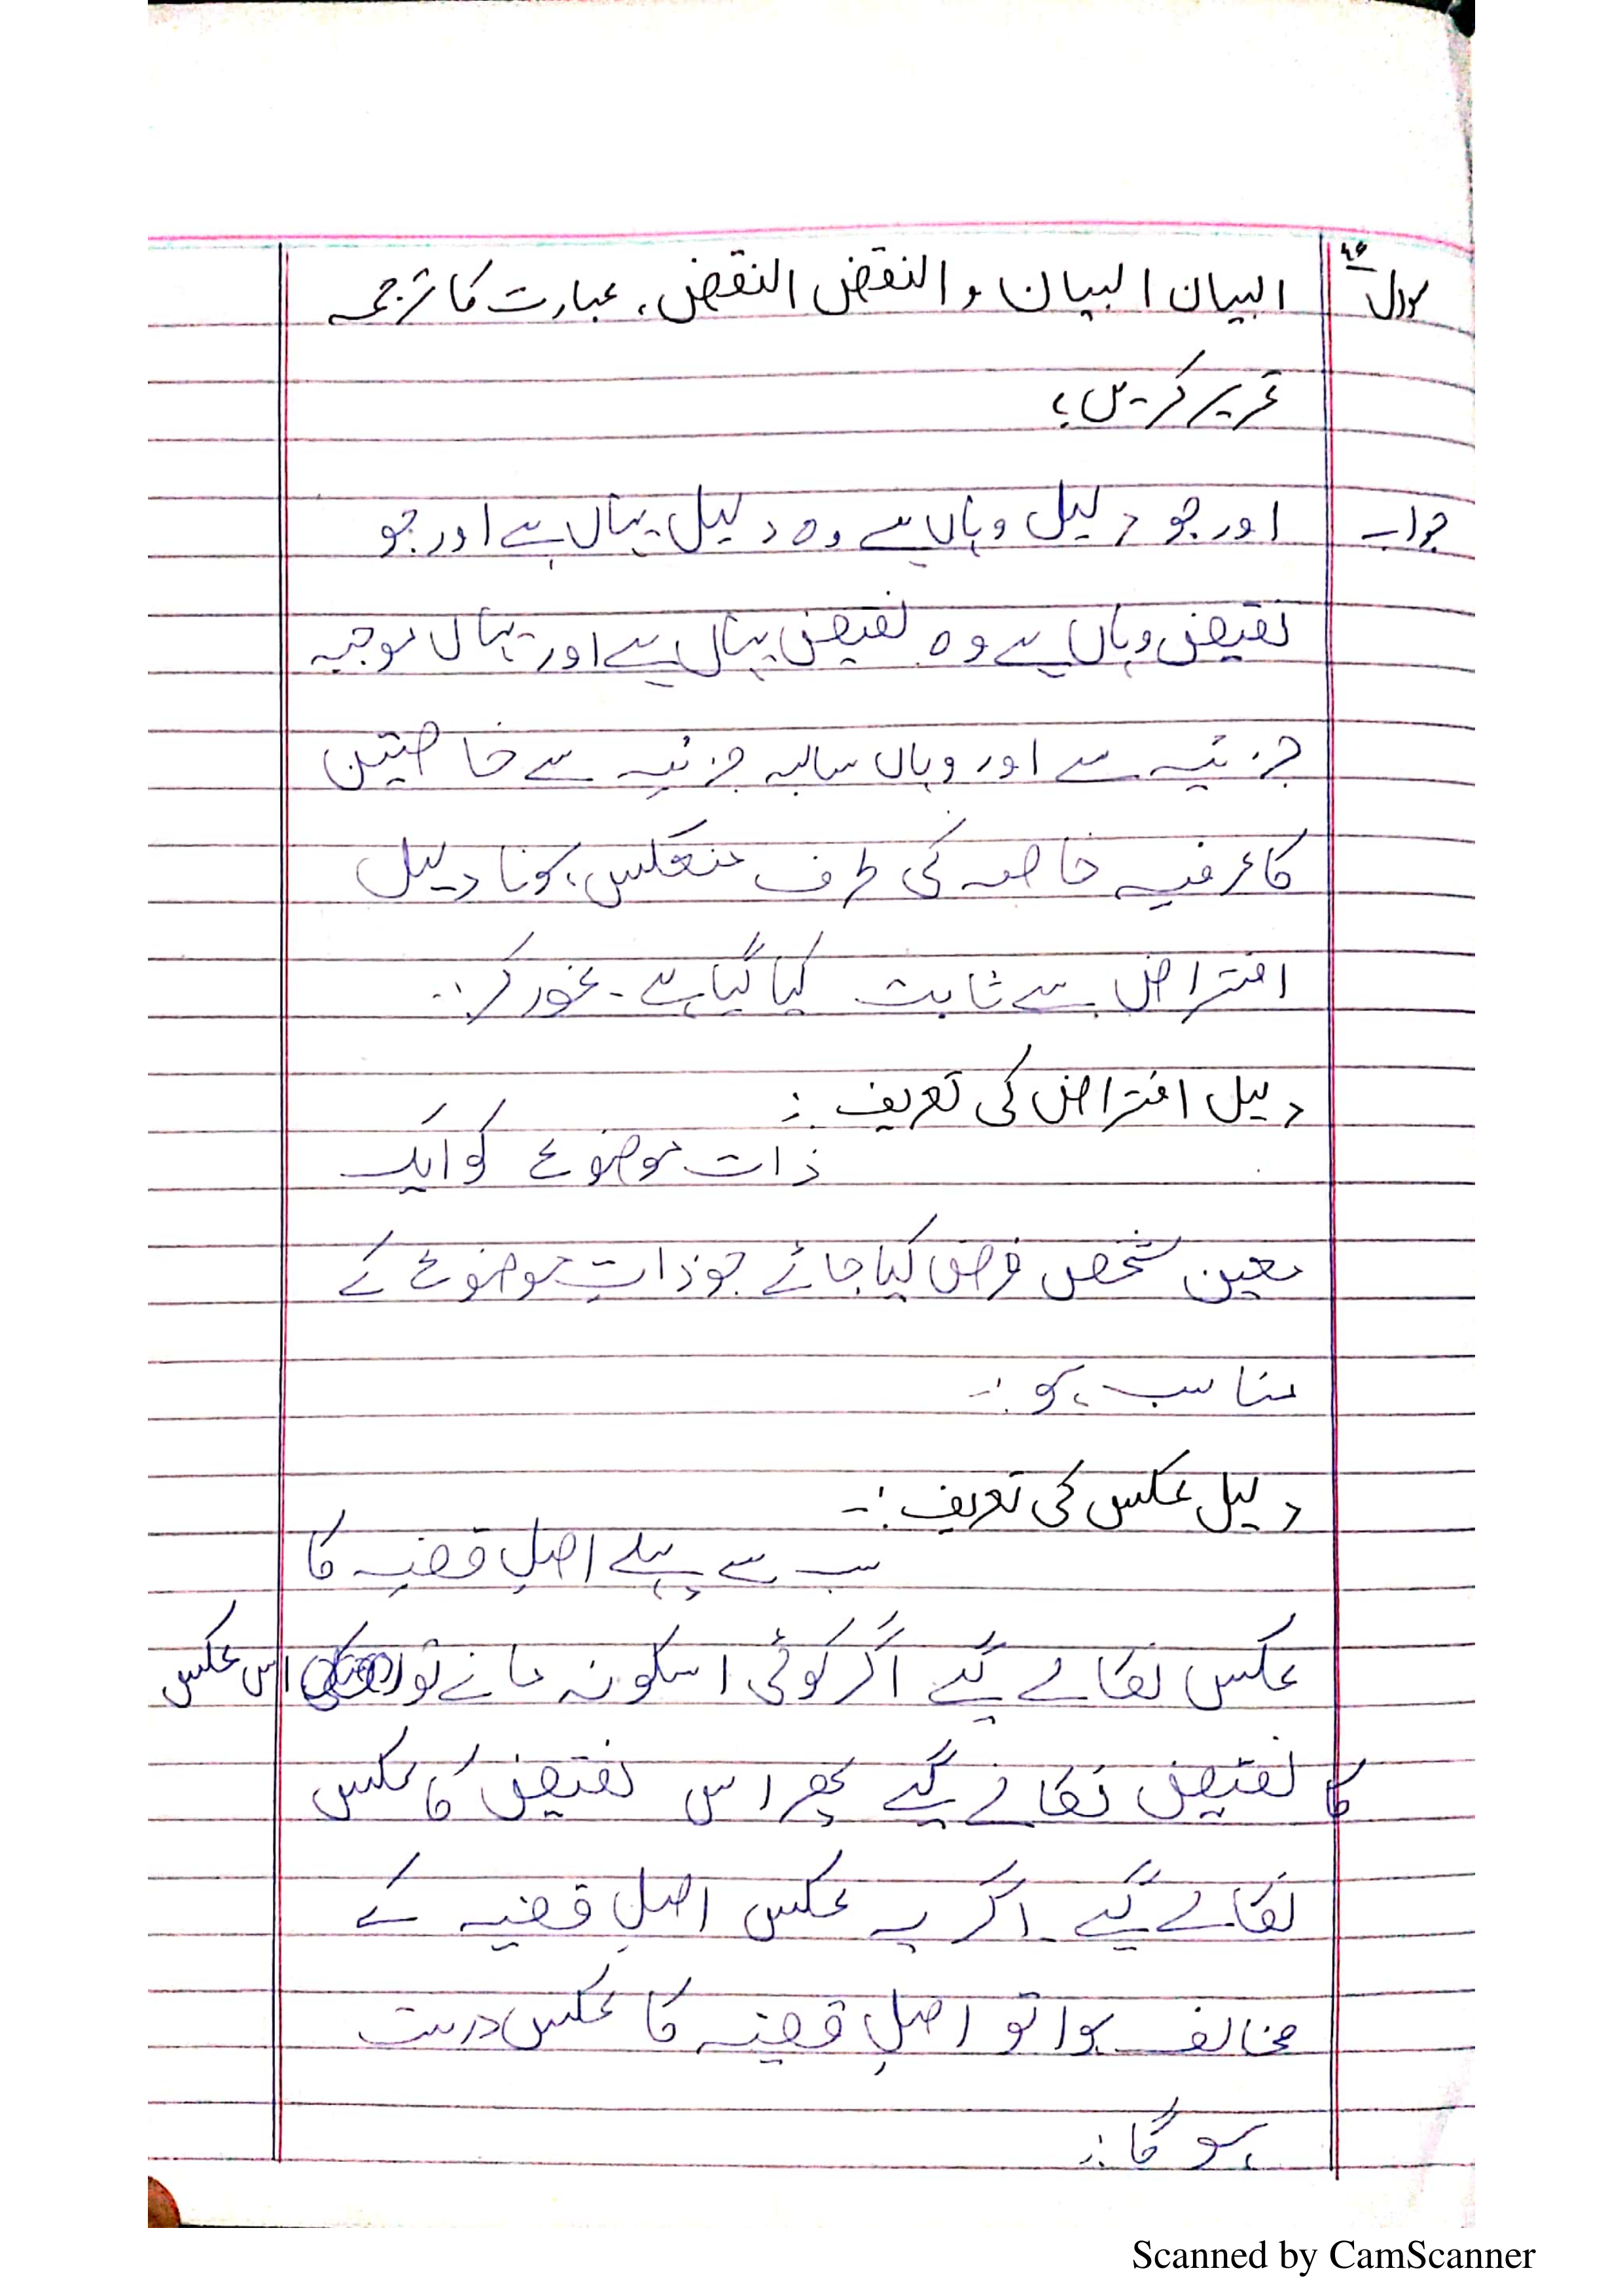 سوال ۴۶ البیان البیان والنقض النقض، عبارت کا ترجمہ
تحریر کریں؛
جواب اور جو دلیل وہاں ہے وہ دلیل یہاں ہے اور جو
نقیض وہاں ہے وہ نقیض یہاں ہے اور یہاں موجبہ
جزئیہ سے اور وہاں سالبہ جزئیہ سے خاصتین
کا عرفیہ خاصہ کی طرف منعکس ہونا دلیل
افتراض سے ثابت کیا گیا ہے۔ غور کر:۔
دلیل افتراض کی تعریف :۔
ذات موضوع کو ایک
معین شخص فرض کیا جائے جو ذاتِ موضوع کے
مناسب ہو :۔
دلیل عکس کی تعریف :۔
سب سے پہلے اصلِ قضیہ کا
عکس نکالے گیے اگر کوئی اسکو نہ مانے تو اس عکس
کا نقیض نکالے گیے پھر اس نقیض کا عکس
نکالے گیے اگر یہ عکس اصلِ قضیہ کے
مخالف ہوا تو اصلِ قضیہ کا عکس درست
ہو گا :۔
Scanned by CamScanner